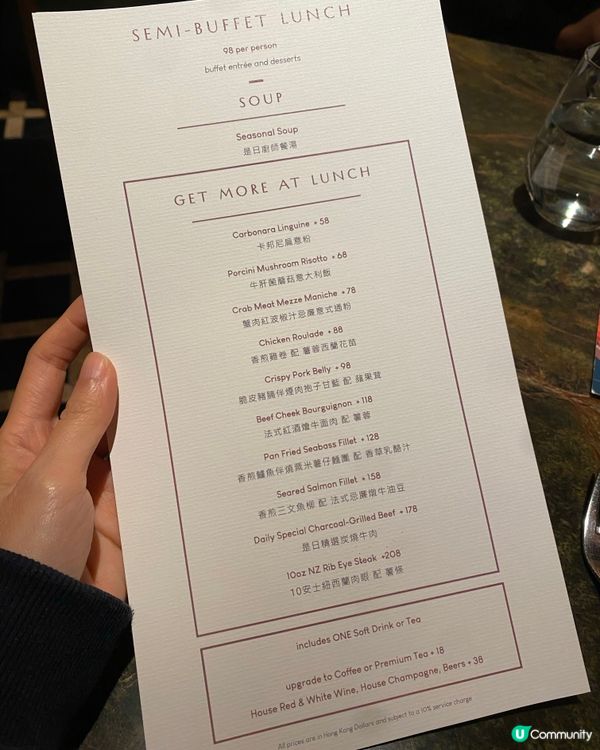 SEMI-BUFFET LUNCH
98 per person
buffet entrée and desserts
SOUP
Seasonal Soup
是日廚師餐湯
GET MORE AT LUNCH
Carbonara Linguine + 58
卡邦尼扁意粉
Porcini Mushroom Risotto + 68
牛肝菌蘑菇意大利飯
Crab Meat Mezze Maniche + 78
蟹肉紅波椒汁忌廉意式通粉
Chicken Roulade + 88
香煎雞卷 配 薯蓉西蘭花苗
Crispy Pork Belly + 98
脆皮豬腩伴煙肉孢子甘藍 配 蘋果茸
Beef Cheek Bourguignon + 118
法式紅酒燴牛面肉 配 薯蓉
Pan Fried Seabass Fillet + 128
香煎鱸魚伴燒粟米薯仔麵團 配 香草乳醋汁
Seared Salmon Fillet + 158
香煎三文魚柳 配 法式忌廉燉牛油豆
Daily Special Charcoal-Grilled Beef + 178
是日精選炭燒牛肉
10oz NZ Rib Eye Steak +208
10安士紐西蘭肉眼 配 薯條
includes ONE Soft Drink or Tea
upgrade to Coffee or Premium Tea + 18
House Red & White Wine, House Champagne, Beers + 38
All prices are in Hong Kong Dollars and subject to a 10% service charge
U Community